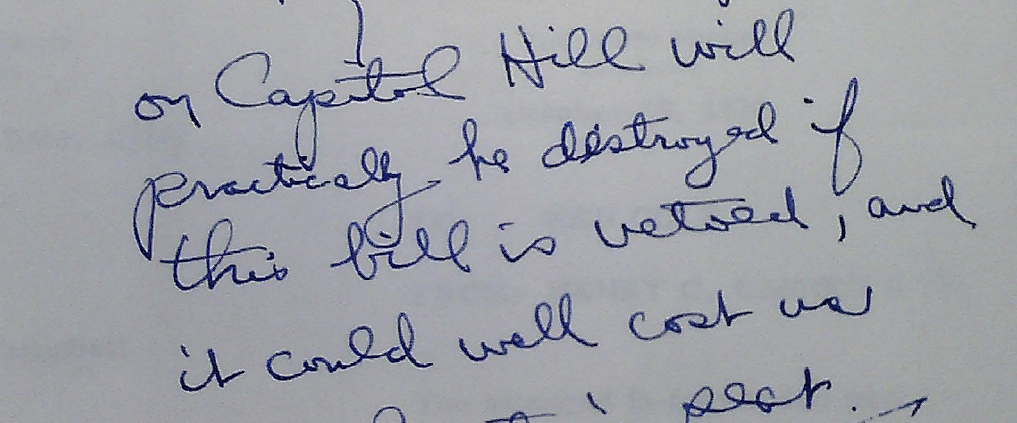 on Capitol Hill will
practically be destroyed if
this bill is vetoed, and
it could well cost us
seat.